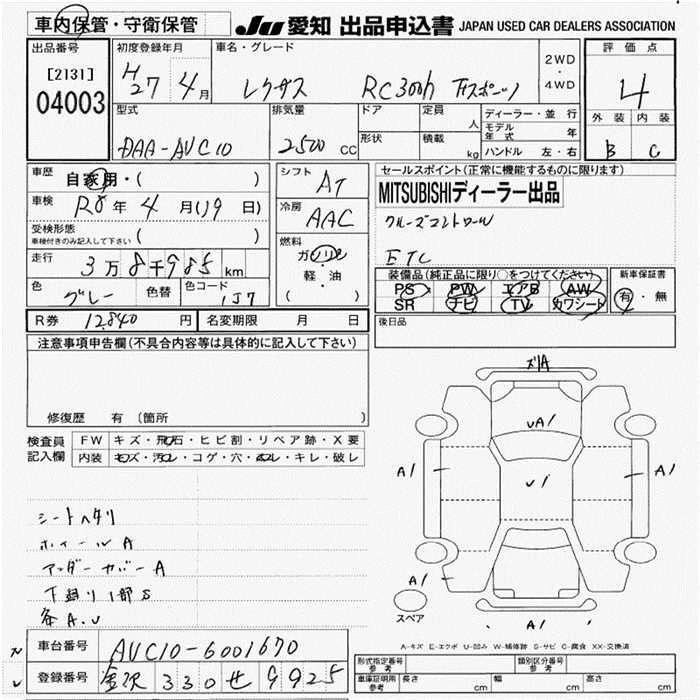 車内保管・守衛保管
JU 愛知 出品申込書 JAPAN USED CAR DEALERS ASSOCIATION
出品番号
[2131]
04003
初度登録年月
H27 4月
車名・グレード
レクサス RC300h Fスポーツ
2WD
・
4WD
評価点
4
外装 内装
B C
型式
DAA-AVC10
排気量
2500 CC
ドア
形状
定員
人
積載
kg
ディーラー・並行
モデル年式 年
ハンドル 左・右
車歴
自家用・( )
車検
R8年 4月(19日)
受検形態
車検付きのみ記入して下さい ( )
走行
3万8千985km
色
グレー
色替
色コード
1J7
シフト
AT
冷房
AAC
燃料
ガソリン
軽・油
( )
セールスポイント(正常に機能するものに限ります)
MITSUBISHIディーラー出品
クルーズコントロール
ETC
装備品(純正品に限り○をつけてください)
PS PW エアB AW
SR ナビ TV カワシート
新車保証書
有・無
後日品
R券 12,840 円
名変期限 月 日
注意事項申告欄(不具合内容等は具体的に記入して下さい)
修復歴 有 〔箇所 〕
検査員記入欄
FW キズ・飛石・ヒビ割・リペア跡・X要
内装 キズ・汚レ・コゲ・穴・スレ・キレ・破レ
シートヘタリ
ホイールA
アンダーカバーA
下廻り1部S
各A.U
ズ1A
UA1
A1
U1
A1
A1
A1
スペア
A-キズ E-エクボ U-凹み W-補修跡 S-サビ C-腐食 XX-交換済
車台番号
AVC10-6001670
登録番号
金沢 330 せ 9925
形式指定番号
参考
類別区分番号
参考
車庫証明用
参考
長さ cm
幅 cm
高さ cm